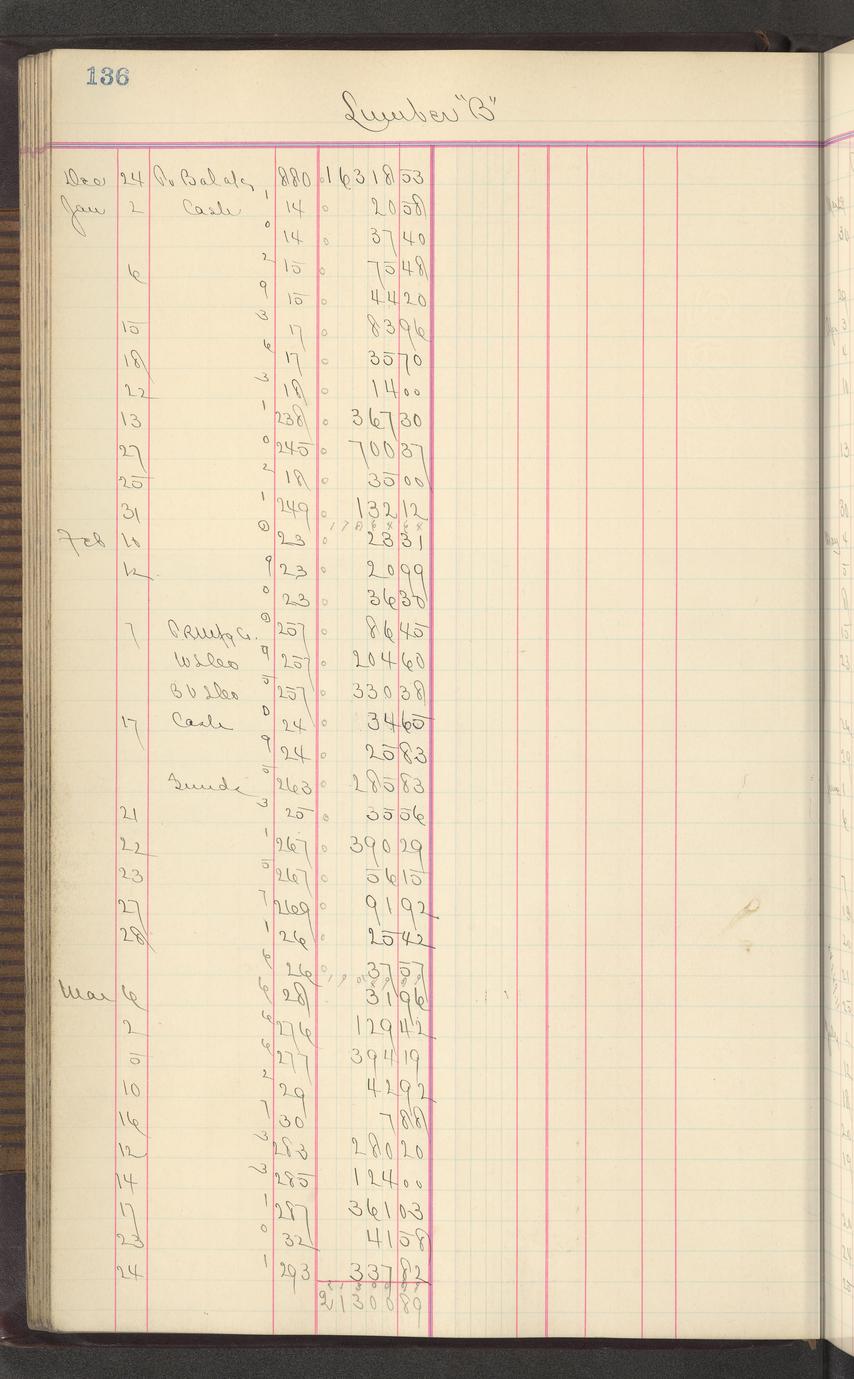 136
Lumber "B"
Dec 24 To Balance 880 16318 53
Jan 2 Cash 1 14 20 58
0 14 37 40
6 2 15 75 48
9 15 44 20
15 3 17 83 96
18 6 17 35 70
22 3 18 14 00
13 1 238 367 30
27 0 245 700 37
25 2 18 35 00
31 1 249 132 12
Feb 10 0 23 23 31
12 9 23 20 99
0 23 36 30
7 0 257 86 45
9 257 204 60
5 257 330 38
17 Cash 0 24 34 65
9 24 25 83
0 263 285 83
21 3 25 35 56
22 1 267 390 29
23 5 267 56 15
27 7 269 91 92
28 1 26 25 42
6 26 37 57
Mar 6 6 28 31 96
2 6 276 129 42
5 6 277 394 19
10 2 29 42 92
16 7 30 7 88
12 3 283 280 20
14 3 285 124 00
17 1 287 361 03
23 0 32 41 58
24 1 293 337 82
21300 89